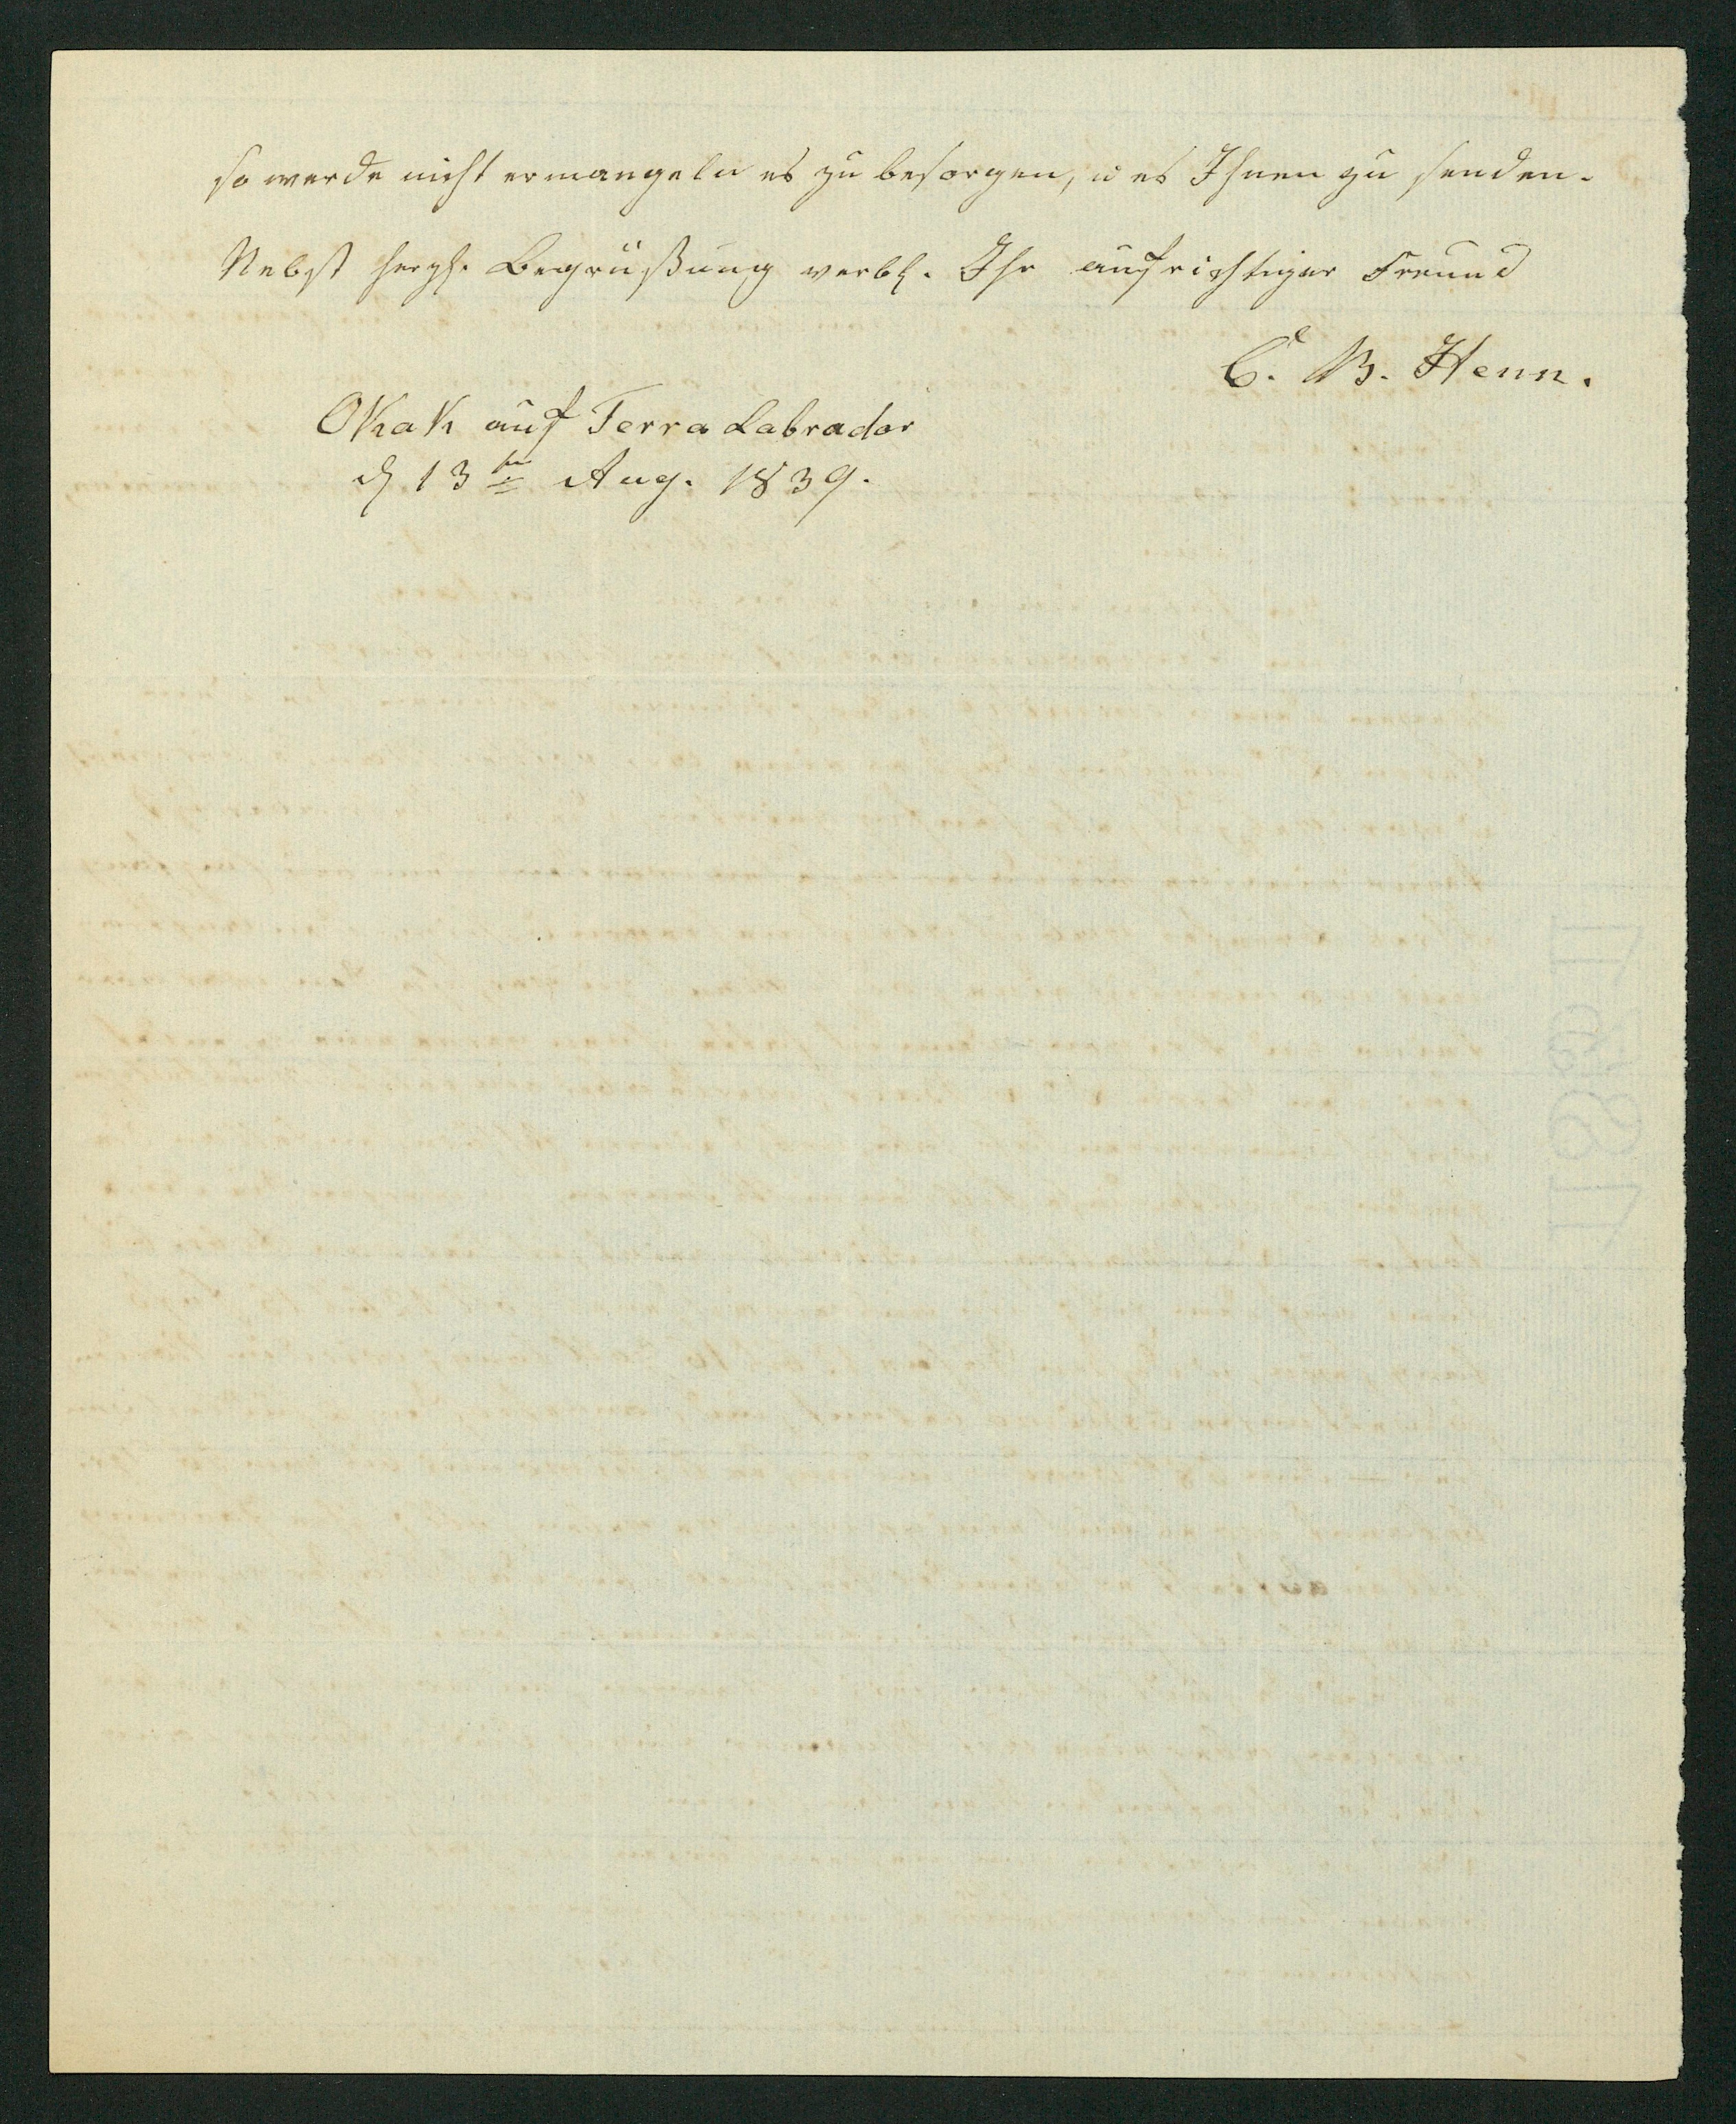 so werde nicht ermangeln es zu besorgen, u es Ihnen zu senden.
Nebst herzl. Begrüßung verbl. Ihr aufrichtiger Freund
C. B. Henn.
Okak auf Terra Labrador
d 13te Aug. 1839.